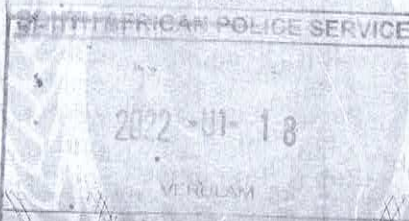 SOUTH AFRICAN POLICE SERVICE
2022 -01- 18
VERULAM